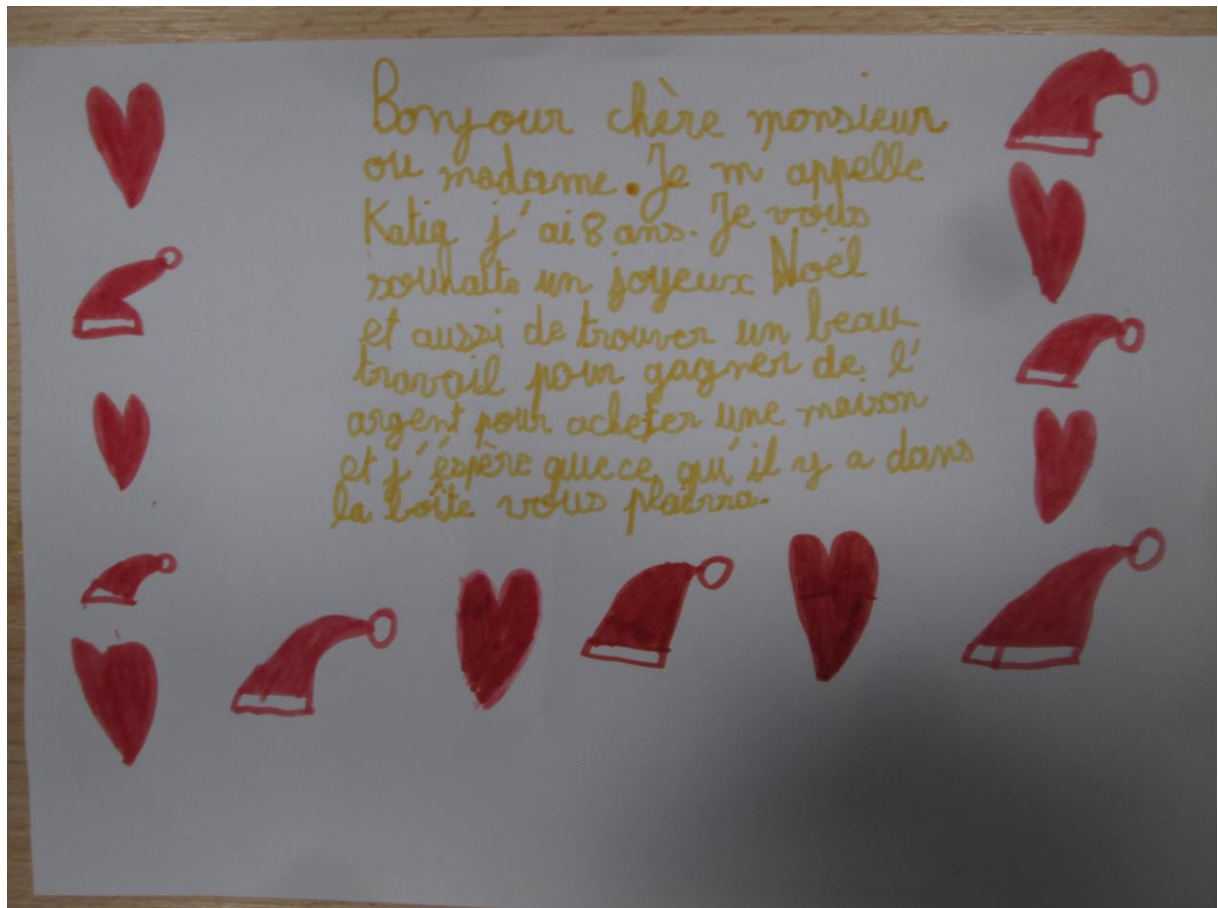 Bonjour chère monsieur
ou madame. Je m appelle
Katia j'ai 8 ans. Je vous
souhaite un joyeux Noël
et aussi de trouver un beau
travail pour gagner de l'
argent pour acheter une maison
et j'éspère que ce qu'il y a dans
la boîte vous plairra.